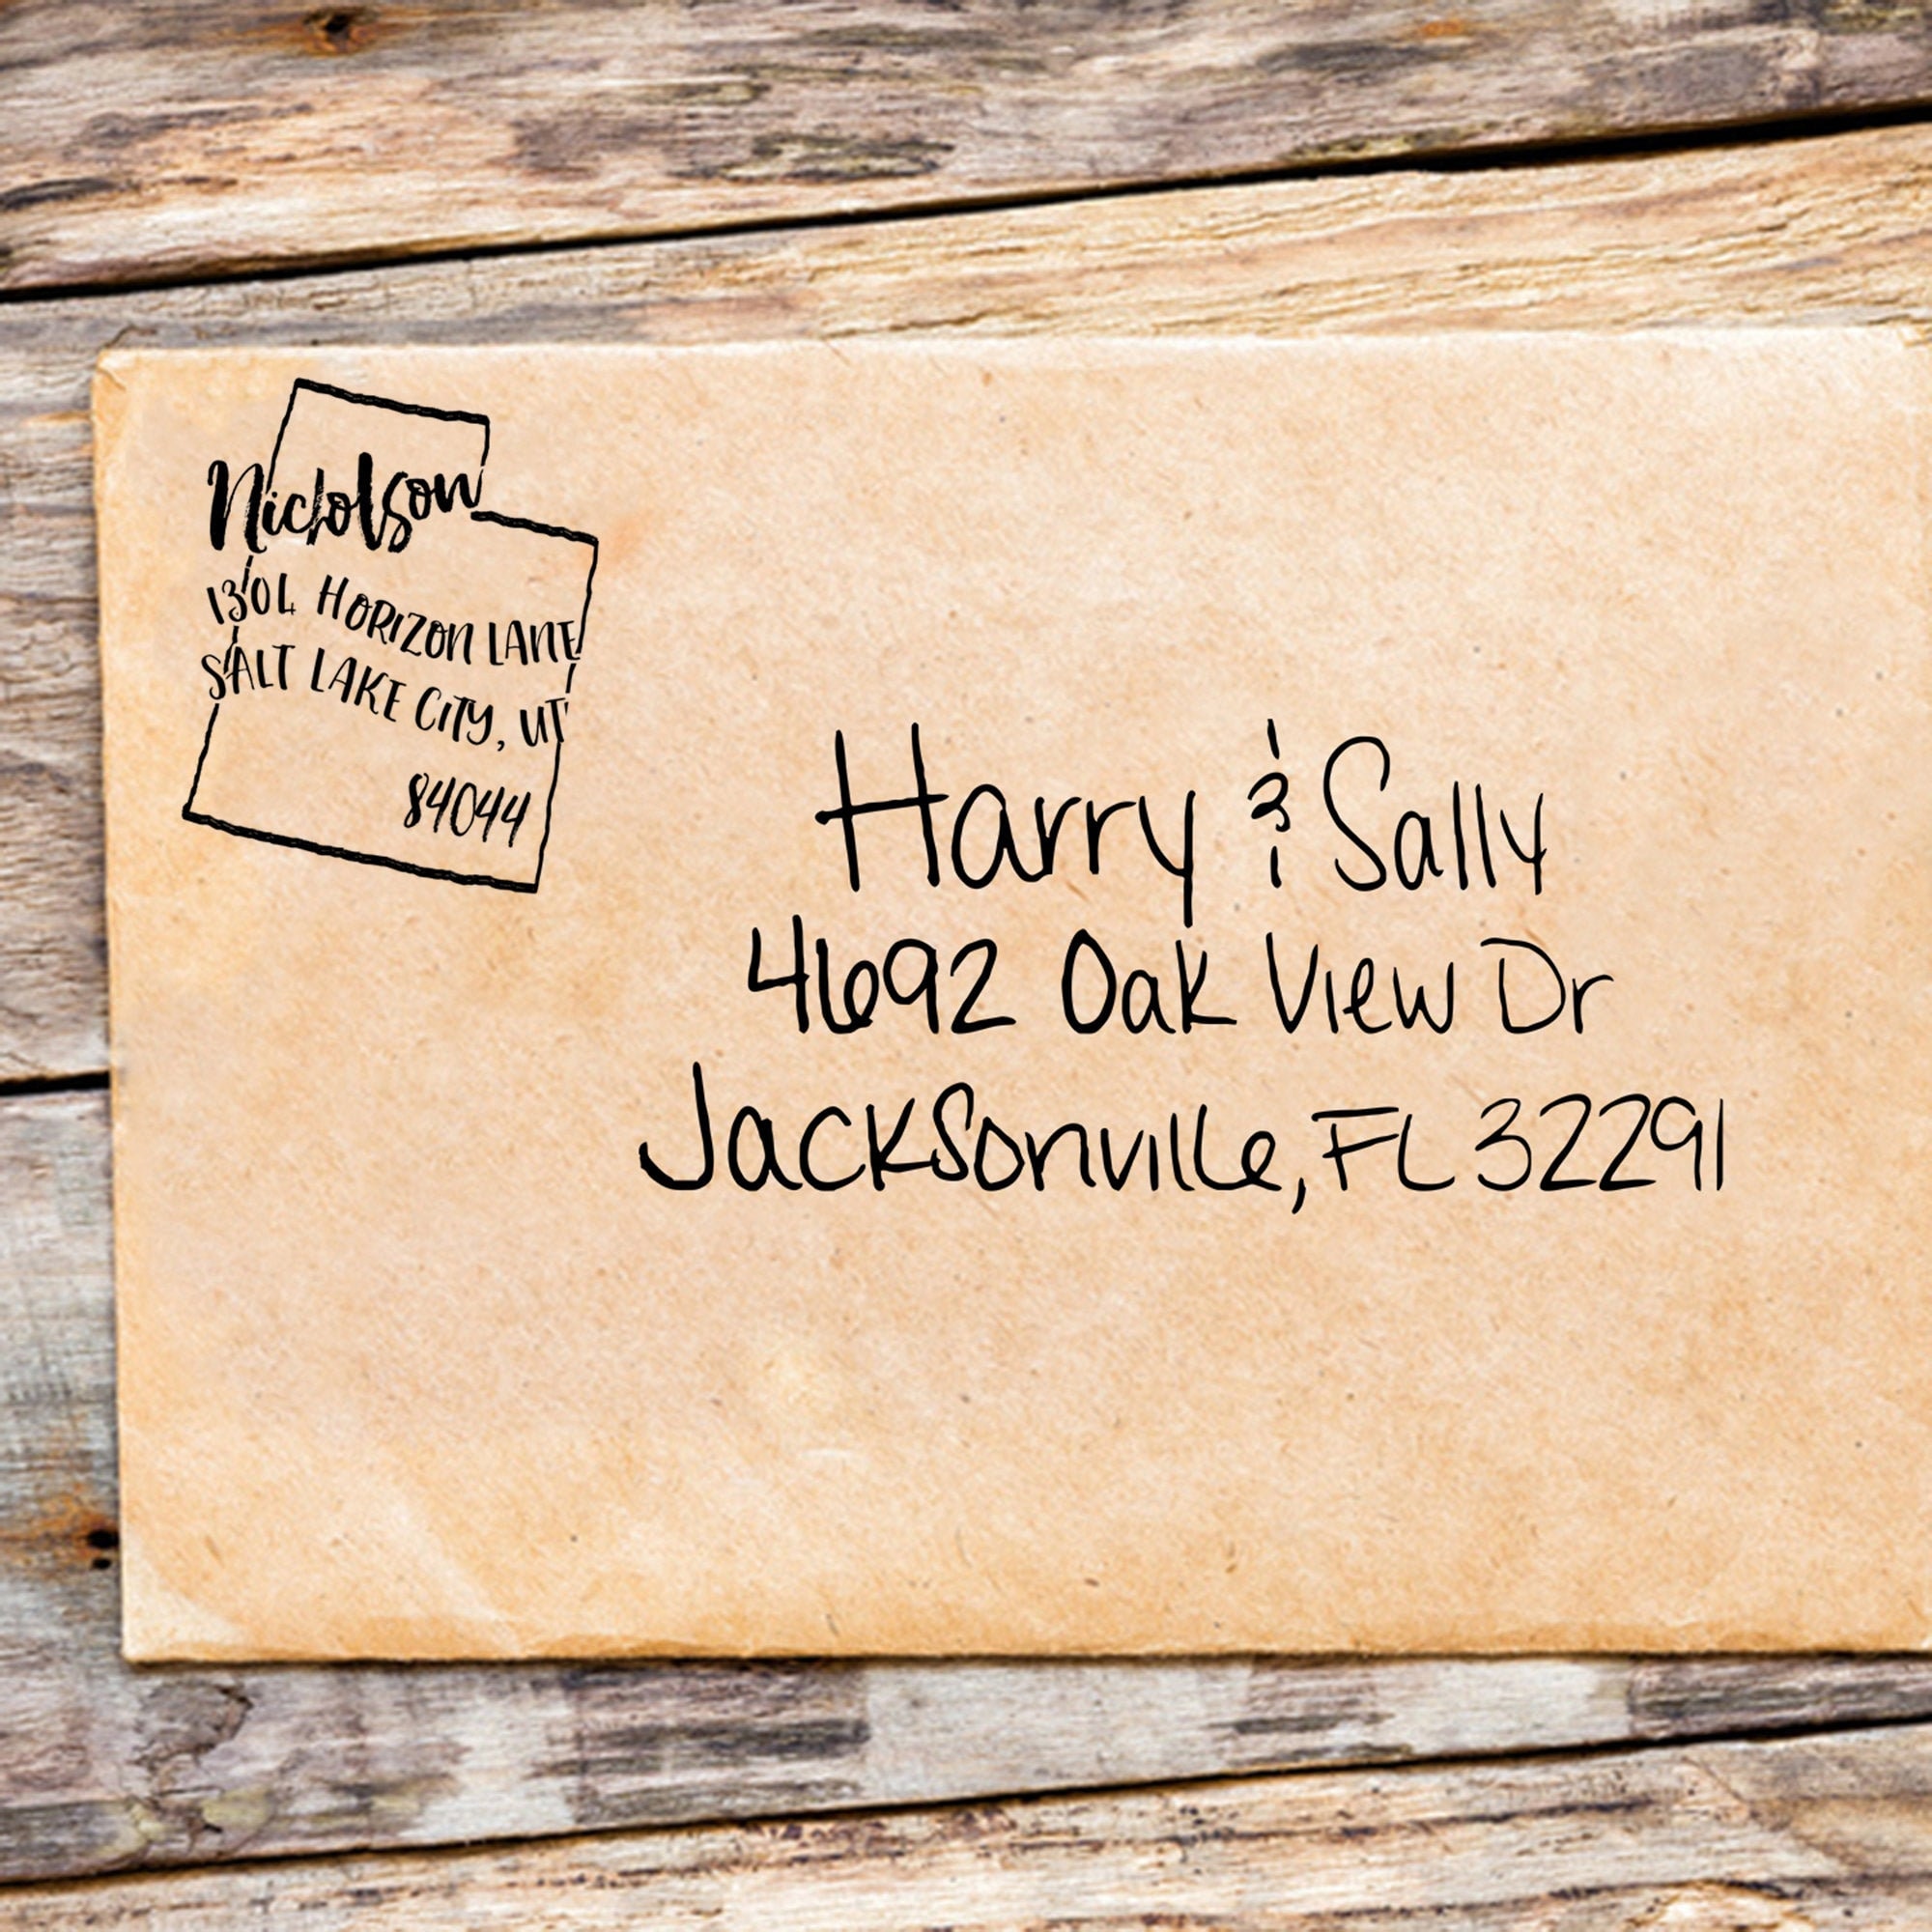 Nicholson
1304 HORIZON LANE
SALT LAKE CITY, UT
84044
Harry & Sally
4692 Oak View Dr
Jacksonville, FL 32291